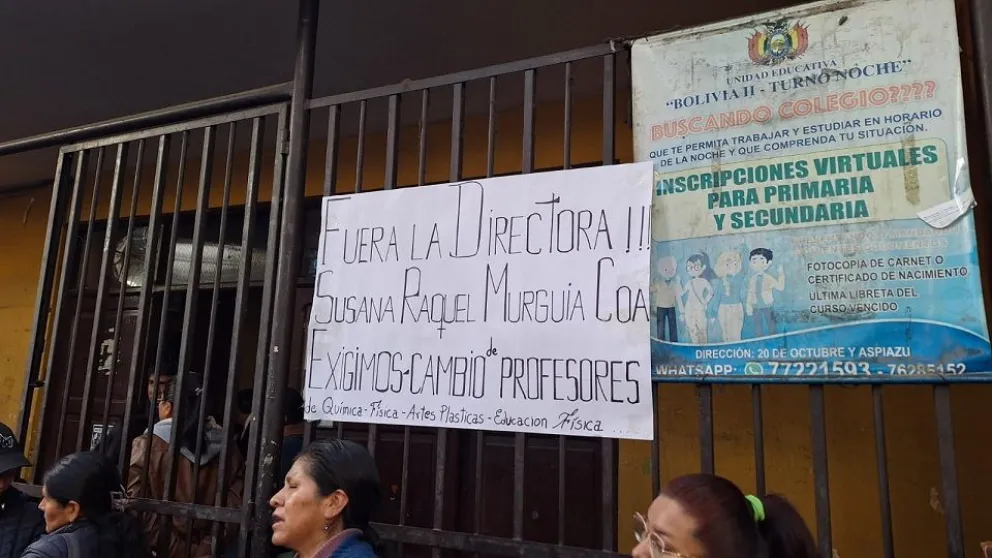 FUERA LA DIRECTORA!!!
SUSANA RAQUEL MURGUIA COA
EXIGIMOS-CAMBIO de PROFESORES
de QUÍMICA - FÍSICA - ARTES PLASTICAS - EDUCACION FÍSICA...
UNIDAD EDUCATIVA
"BOLIVIA II - TURNO NOCHE"
BUSCANDO COLEGIO????
QUE TE PERMITA TRABAJAR Y ESTUDIAR EN HORARIO
DE LA NOCHE Y QUE COMPRENDA TU SITUACIÓN.
INSCRIPCIONES VIRTUALES
PARA PRIMARIA
Y SECUNDARIA
FOTOCOPIA DE CARNET O
CERTIFICADO DE NACIMIENTO
ULTIMA LIBRETA DEL
CURSO VENCIDO
DIRECCIÓN: 20 DE OCTUBRE Y ASPIAZU
WHATSAPP: 77221593 - 76285152